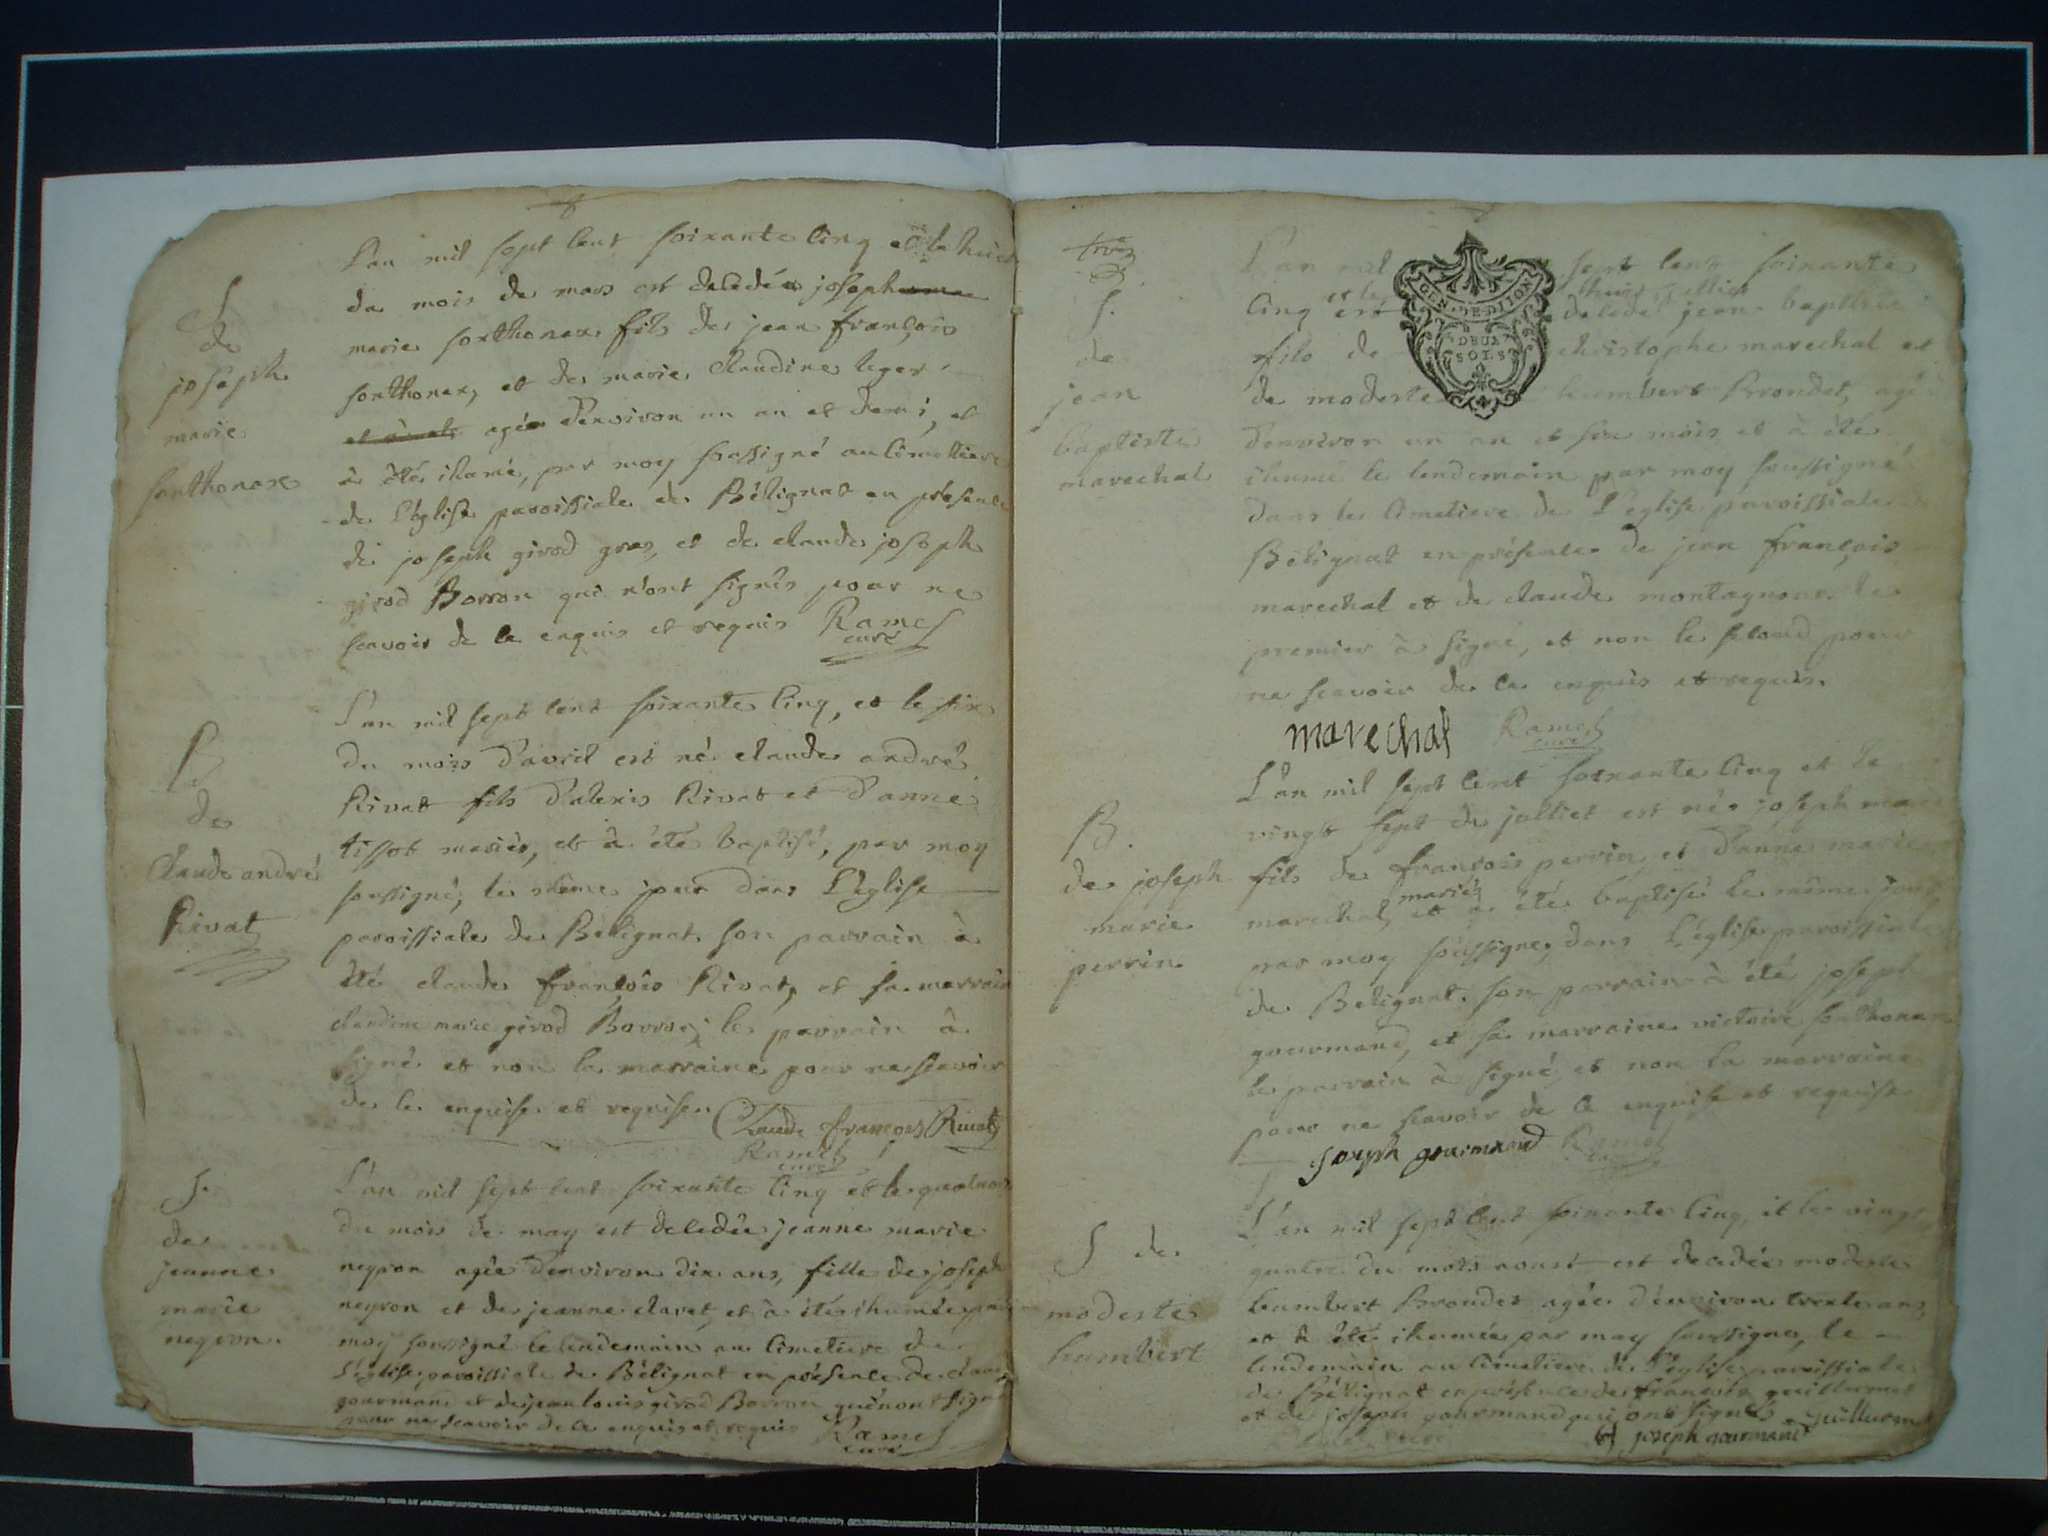 S
de
joseph
marie
sonthonax
L'an mil sept cent soixante cinq et le huit
du mois de mars est decedé joseph
marie sonthonax fils de jean françois
sonthonax, et de marie claudine leger
agée d'environ un an et demi, et
à été ihumé, par moy soussigné au cimetiere
de L'église paroissiale de Bélignat en présence
de joseph girod gros, et de claude joseph
girod Borron qui n'ont signés pour ne
scavoir de ce enquis et requis Ramel
curé
B
de
claude andré
Rivat
L'an mil sept cent soixante cinq, et le six
du mois d'avril est né claude andré
Rivat fils d'alexis Rivat et d'anne
tissot mariés, et à été baptisé, par moy
soussigné, le même jour dans L'église
paroissiale de Bélignat son parrain à
été claude françois Rivat, et sa marraine
claudine marie girod Borron; le parrain à
signé et non la marraine pour ne scavoir
de ce enquise et requise Claude françois Rivat
Ramel
curé
S.
de
jeanne
marie
neyron.
L'an mil sept cent soixante cinq et le quatorze
du mois de may est decedée jeanne marie
neyron agée d'environ dix ans, fille de joseph
neyron et de jeanne claret, et à été ihumée par
moy soussigné le lendemain au cimetiere de
L'église paroissiale de Bélignat en présence de claude
gourmand et de jean louis girod Borron qui n'ont signé
pour ne scavoir de ce enquis et requis Ramel
curé
S.
de
jean
baptiste
marechal
GEN. DE DIJON
DEUX
SOLS
L'an mil sept cent soixante
cinq et le huit juillet
est decedé jean baptiste
fils de christophe marechal et
de modeste humbert Brondet, agé
d'environ un an et six mois et à été
ihumé le lendemain par moy soussigné
dans le cimetiere de L'eglise paroissiale de
Bélignat en présence de jean françois
marechal et de claude montagnon le
premier à signé, et non le second pour
ne scavoir de ce enquis et requis.
marechal Ramel
curé
B.
de joseph
marie
perrin
L'an mil sept cent soixante cinq et le
vingt sept de julliet est né joseph marie
fils de françois perrin et d'anne marie
mariés
marechal, et à été baptisé le même jour
par moy soussigné, dans L'église paroissiale
de Belignat. son parrain à été joseph
gourmand, et sa marraine victoire sonthonax
le parrain à signé, et non la marraine
pour ne scavoir de ce enquise et requise
joseph gourmand Ramel
curé
S de
modeste
humbert
L'an mil sept cent soixante cinq, et le vingt
quatre du mois aoust est decedée modeste
humbert Brondet agée d'environ trente ans,
et à été ihumée par moy soussigné, le
lendemain au cimetiere de l'eglise paroissiale
de Béllignat en présence de françois guillermet
et de joseph gourmand qui ont signés guillermet
joseph gourmand